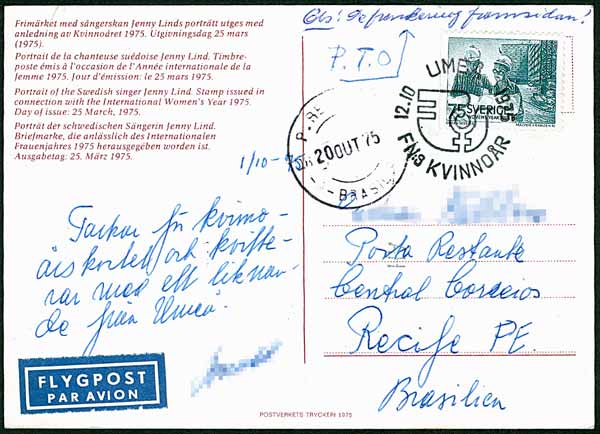 Frimärket med sångerskan Jenny Linds porträtt utges med
anledning av Kvinnoåret 1975. Utgivningsdag 25 mars
(1975).
Portrait de la chanteuse suédoise Jenny Lind. Timbre-
poste émis à l'occasion de l'Année internationale de la
femme 1975. Jour d'émission: le 25 mars 1975.
Portrait of the Swedish singer Jenny Lind. Stamp issued in
connection with the International Women's Year 1975.
Day of issue: 25 March, 1975.
Porträt der schwedischen Sängerin Jenny Lind.
Briefmarke, die anlässlich des Internationalen
Frauenjahres 1975 herausgegeben worden ist.
Ausgabetag: 25. März 1975.
Obs! Se frankering framsidan!
P.T.O
75 SVERIGE
UMEÅ 1975
12.10
FN:s KVINNOÅR
20 OUT 75
BRASIL
1/10-75
Tackar för kvinno-
årskortet och kvitte-
rar med ett liknan-
de från Umeå.
FLYGPOST
PAR AVION
Posta Restante
Central Correios
Recife PE.
Brasilien
POSTVERKETS TRYCKERI 1975